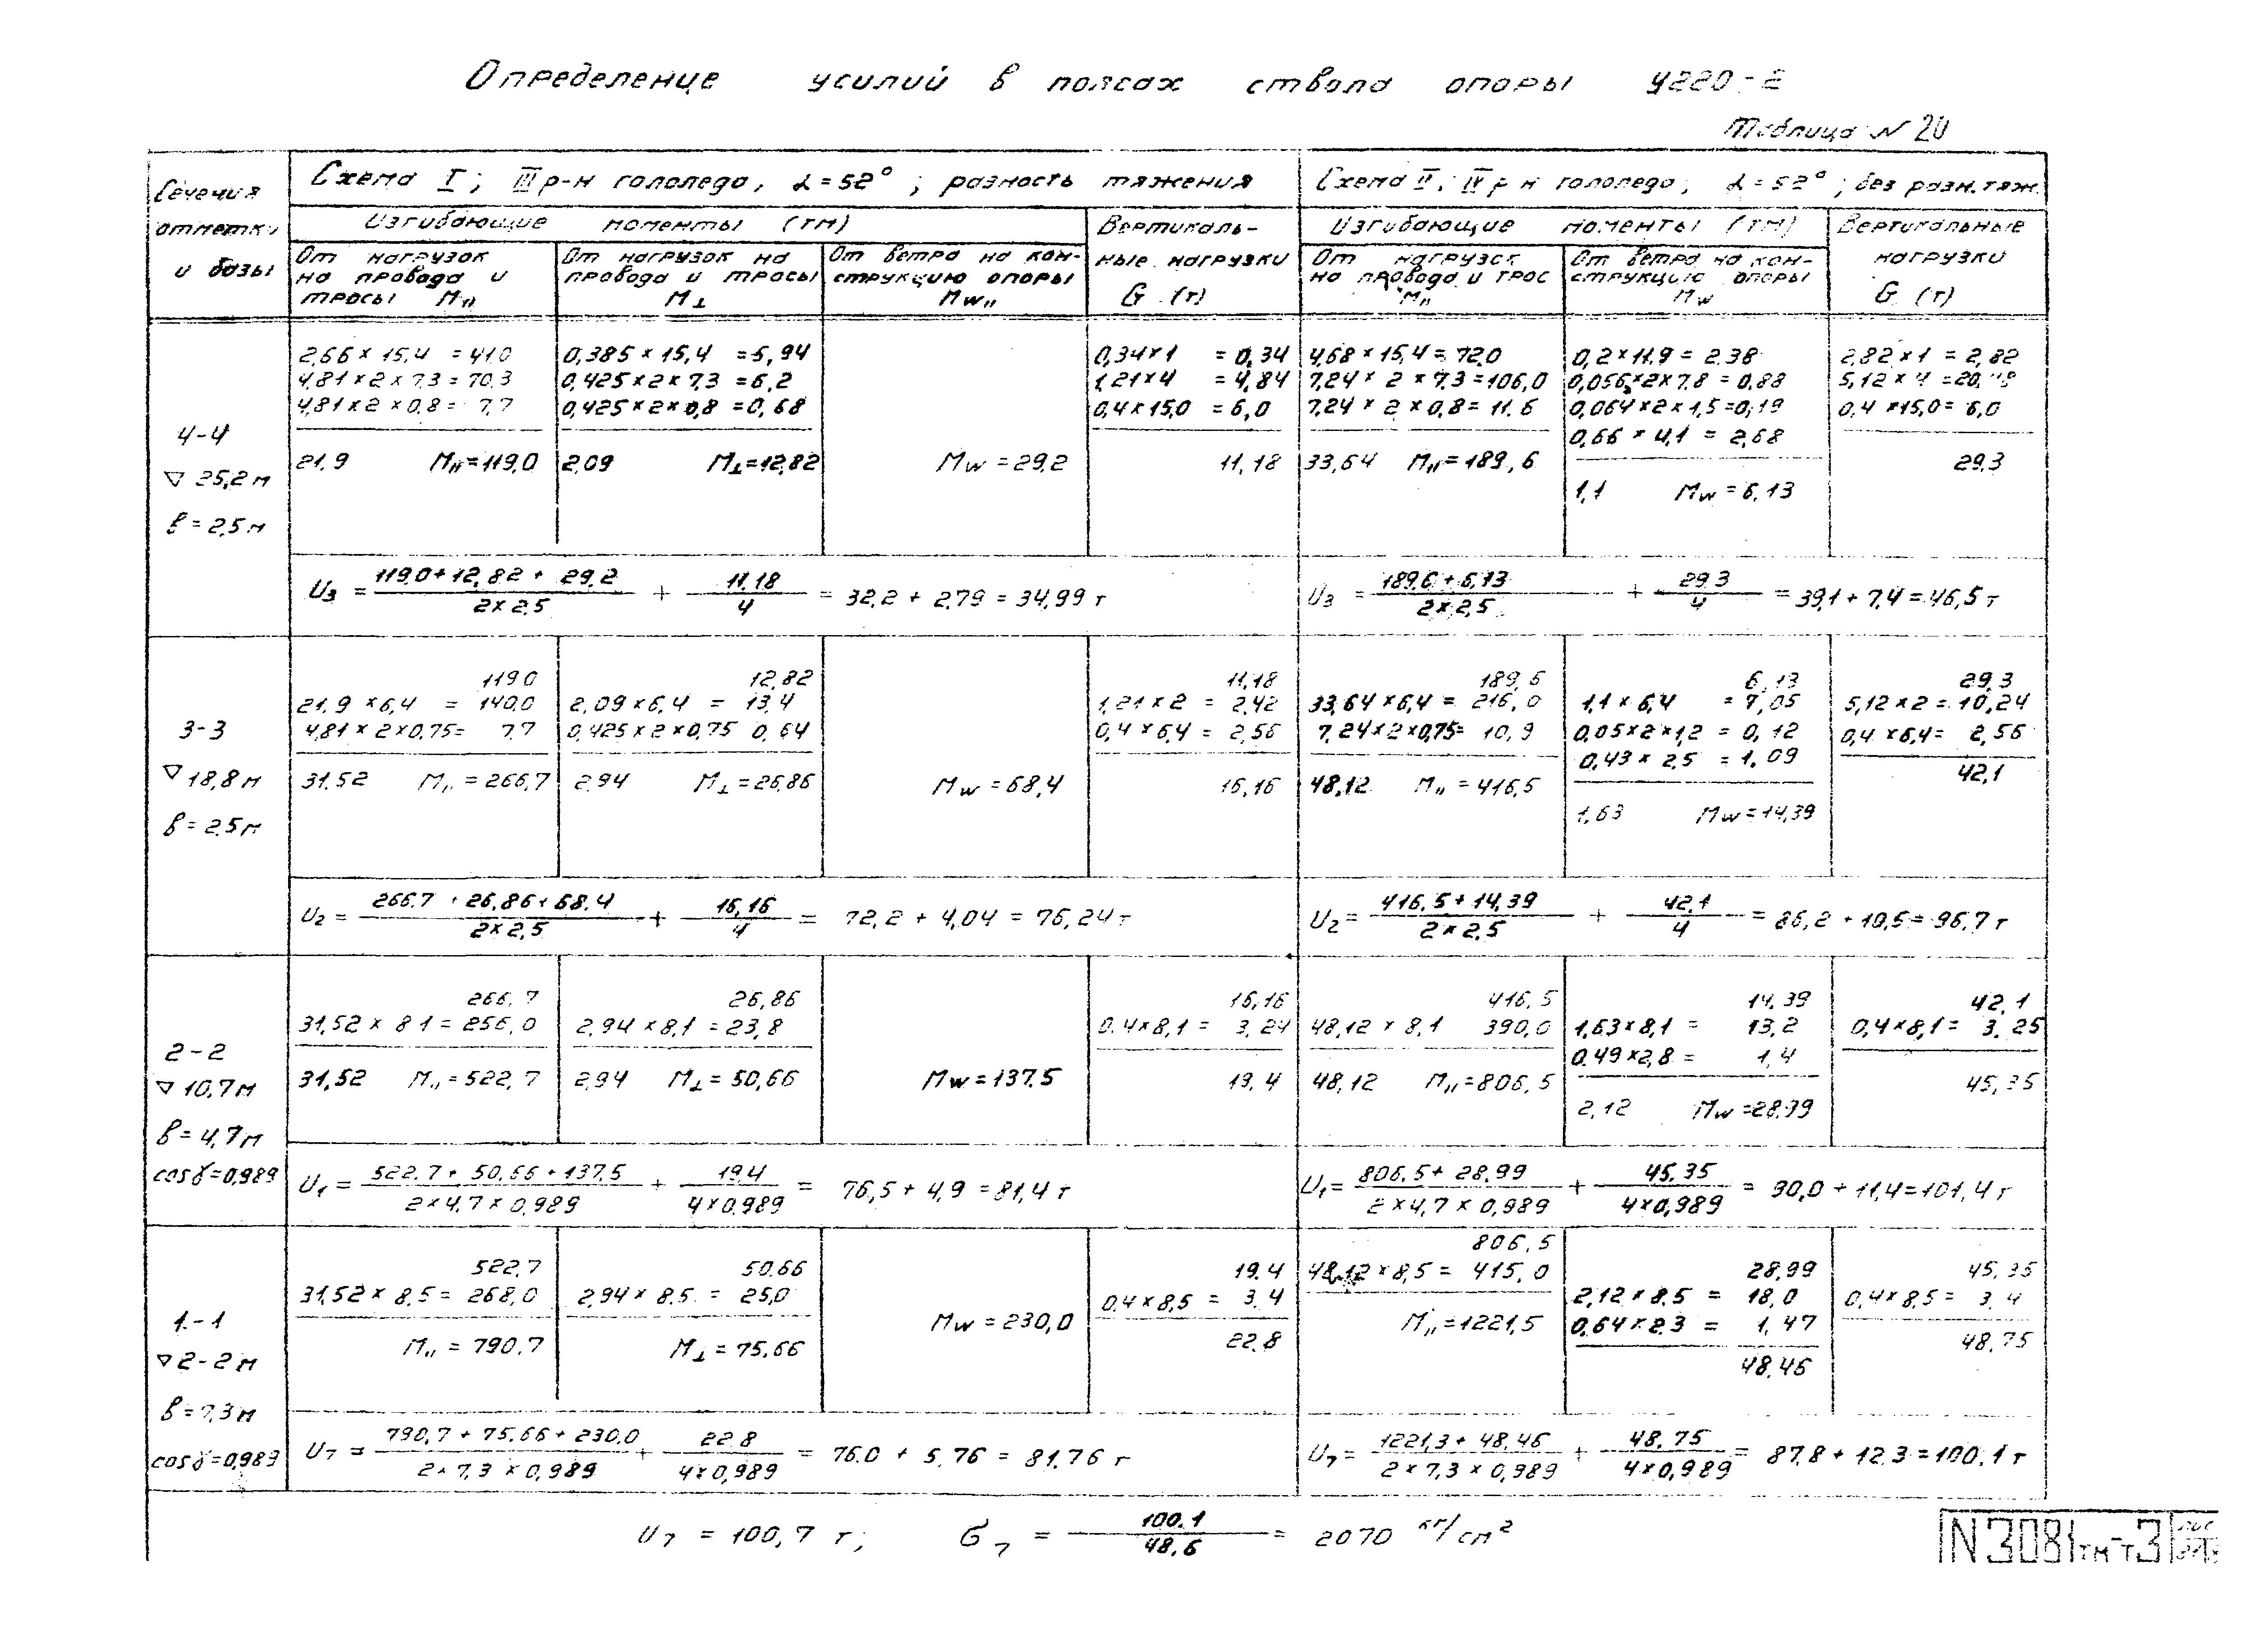 Определение усилий в поясах ствола опоры У220-2
Таблица N 20
Сечения отметки и базы
Схема I; III р-н гололеда, α=52°; разность тяжения
Схема II; IV р-н гололеда; α=52°; без разн. тяж.
Изгибающие моменты (тм)
Вертикаль-ные нагрузки G (т)
Изгибающие моменты (тм)
Вертикальные нагрузки G (т)
От нагрузок на провода и тросы M//
От нагрузок на провода и тросы M⊥
От ветра на кон-струкцию опоры Mw//
От нагрузок на провода и трос M//
От ветра на кон-струкцию опоры Mw
4-4
▽ 25,2 м
в = 2,5 м
2,66 × 15,4 = 41,0
4,81 × 2 × 7,3 = 70,3
4,81 × 2 × 0,8 = 7,7
21,9 M// = 119,0
0,385 × 15,4 = 5,94
0,425 × 2 × 7,3 = 6,2
0,425 × 2 × 0,8 = 0,68
2,09 M⊥ = 12,82
Mw = 29,2
0,34 × 1 = 0,34
1,21 × 4 = 4,84
0,4 × 15,0 = 6,0
11,18
4,68 × 15,4 = 72,0
7,24 × 2 × 7,3 = 106,0
7,24 × 2 × 0,8 = 11,6
33,64 M// = 189,6
0,2 × 11,9 = 2,38
0,056 × 2 × 7,8 = 0,88
0,064 × 2 × 1,5 = 0,19
0,66 × 4,1 = 2,68
1,1 Mw = 6,13
2,82 × 1 = 2,82
5,12 × 4 = 20,48
0,4 × 15,0 = 6,0
29,3
U3 = (119,0 + 12,82 + 29,2) / (2 × 2,5) + 11,18 / 4 = 32,2 + 2,79 = 34,99 т
U3 = (189,6 + 6,13) / (2 × 2,5) + 29,3 / 4 = 39,1 + 7,4 = 46,5 т
3-3
▽ 18,8 м
в = 2,5 м
119,0
21,9 × 6,4 = 140,0
4,81 × 2 × 0,75 = 7,7
31,52 M// = 266,7
12,82
2,09 × 6,4 = 13,4
0,425 × 2 × 0,75 0,64
2,94 M⊥ = 26,86
Mw = 68,4
11,18
1,21 × 2 = 2,42
0,4 × 6,4 = 2,56
16,16
189,6
33,64 × 6,4 = 216,0
7,24 × 2 × 0,75 = 10,9
48,12 M// = 416,5
6,13
1,1 × 6,4 = 7,05
0,05 × 2 × 1,2 = 0,12
0,43 × 2,5 = 1,09
1,63 Mw = 14,39
29,3
5,12 × 2 = 10,24
0,4 × 6,4 = 2,56
42,1
U2 = (266,7 + 26,86 + 68,4) / (2 × 2,5) + 16,16 / 4 = 72,2 + 4,04 = 76,24 т
U2 = (416,5 + 14,39) / (2 × 2,5) + 42,1 / 4 = 86,2 + 10,5 = 96,7 т
2-2
▽ 10,7 м
в = 4,7 м
cosγ = 0,989
266,7
31,52 × 8,1 = 256,0
31,52 M// = 522,7
26,86
2,94 × 8,1 = 23,8
2,94 M⊥ = 50,66
Mw = 137,5
16,16
0,4 × 8,1 = 3,24
19,4
416,5
48,12 × 8,1 390,0
48,12 M// = 806,5
14,39
1,63 × 8,1 = 13,2
0,49 × 2,8 = 1,4
2,12 Mw = 28,99
42,1
0,4 × 8,1 = 3,25
45,35
U1 = (522,7 + 50,66 + 137,5) / (2 × 4,7 × 0,989) + 19,4 / (4 × 0,989) = 76,5 + 4,9 = 81,4 т
U1 = (806,5 + 28,99) / (2 × 4,7 × 0,989) + 45,35 / (4 × 0,989) = 90,0 + 11,4 = 101,4 т
1-1
▽ 2-2 м
в = 7,3 м
cosγ = 0,989
522,7
31,52 × 8,5 = 268,0
M// = 790,7
50,66
2,94 × 8,5 = 25,0
M⊥ = 75,66
Mw = 230,0
19,4
0,4 × 8,5 = 3,4
22,8
806,5
48,12 × 8,5 = 415,0
M// = 1221,5
28,99
2,12 × 8,5 = 18,0
0,64 × 2,3 = 1,47
48,46
45,35
0,4 × 8,5 = 3,4
48,75
U7 = (790,7 + 75,66 + 230,0) / (2 × 7,3 × 0,989) + 22,8 / (4 × 0,989) = 76,0 + 5,76 = 81,76 т
U7 = (1221,3 + 48,46) / (2 × 7,3 × 0,989) + 48,75 / (4 × 0,989) = 87,8 + 12,3 = 100,1 т
U7 = 100,7 т; σ7 = 100,1 / 48,6 = 2070 кг/см²
N 3081тм-т3